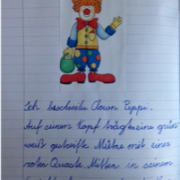 Ich beschreibe Clown Peppo.
Auf seinem Kopf trägt eine grün
weiß gestreifte Mütze mit einer
roten Quaste. Mitten in seinem